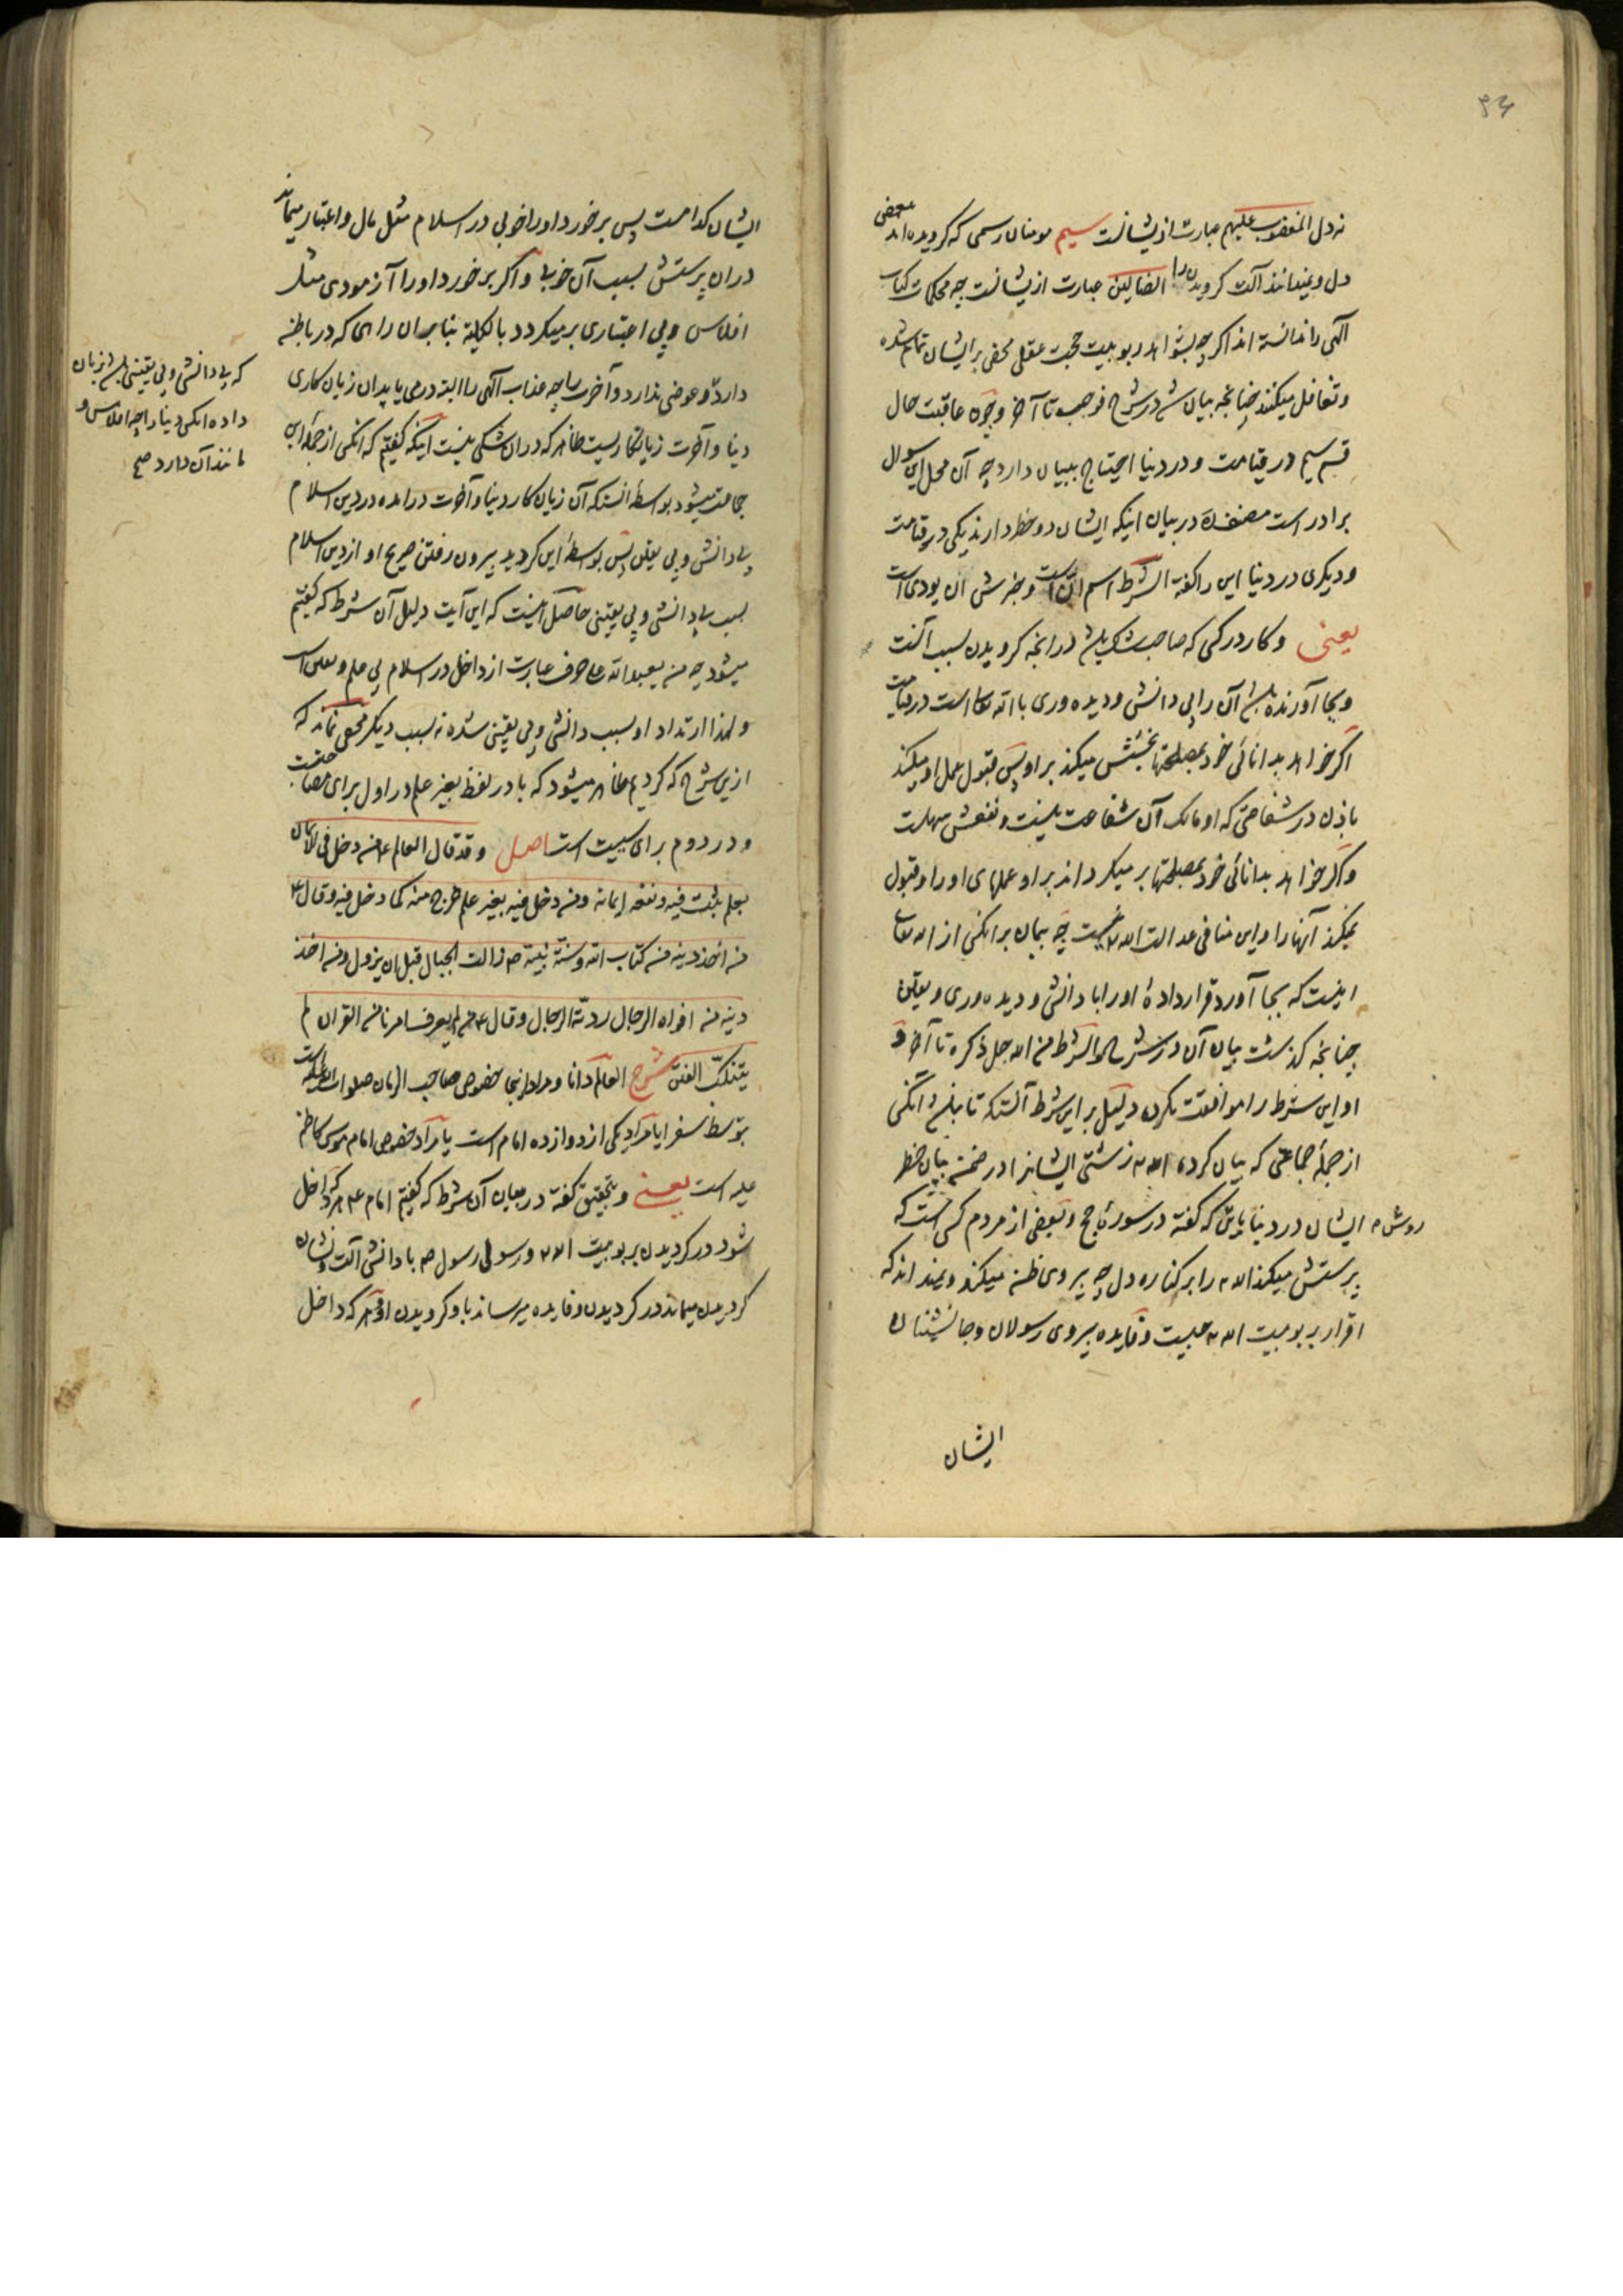 نه دل المغضوب علیهم عبارت ازیشانست سیم مومنان رسمی که کرویده اند بمحض
دل و نمیدانند آلت کرویدن را الضالین عبارت ازیشانست چه محکمات کتاب
الهی را ندانسته اند اکرچه بشواهد ربوبیت حجت عقلی محض برایشان تمام شده
و تغافل میکنند چنانچه بیان شد در شرح فوجب تا آخر و چون عاقبت حال
قسم سیم در قیامت و در دنیا احتیاج ببیان دارد چه آن محل این سوال
برادر است مصنف در بیان اینکه ایشان دو خطر دارند یکی در قیامت
و دیکری در دنیا این را کفته الشرط اسم ان است و خبرش ان یودی است
یعنی و کار در کسی که صاحب شک باشد در انچه کرویدن بسبب آنست
و بجا آورنده باشد آن را بی دانش و دیده وری با الله تعالی است در قیامت
اکر خواهد بدانائی خود بمصلحتها بخشش میکند بر او پس قبول عمل او میکند
باذن در شفاعتی که او مالک آن شفاعت نیست و نفعش سهلست
و اکر خواهد بدانائی خود بمصلحتها بر میکرداند بر او عملهای او را و قبول
نمیکند آنها را و این منافی عدالت الله نیست چه پیمان بر انکس از الله تعالی
اینست که بجا آورد قرارداده اورا با دانش و دیده وری و یقین
چنانچه کذشت بیان آن در شرح والشرط من الله جل ذکره تا آخر و
او این شرط را موافقت نکرده و دلیل بر این شرط آنست که تا باشد انکس
از جمله جماعتی که بیان کرده الله زشتی ایشانرا در ضمن بیان خطر
روش ایشان در دنیا باین که کفته در سوره حج و بعضی از مردم کسی است که
پرستش میکند الله را بر کناره دل چه پیروی ظن میکند و نمیداند که
اقرار بربوبیت الله چیست و فایده پیروی رسولان و جانشینان
ایشان
ایشان کدامست پس اکر برخورد اورا خوبی در اسلام مثل مال و اعتبار میماند
در ان پرستش بسبب آن خوبی و اکر برخورد اورا آزمودی مثل
افلاس و بی اعتباری برمیکردد بالکلیه بنا بر ان راهی که در باطن
دارد و عوضی ندارد و آخرت را چه عذاب الهی را البته درمی یابد ان زیان کاری
دنیا و آخرت زیانکاریست ظاهر که در ان شکی نیست اینکه کفتیم که انکس از جمله این
جماعت میشود بواسطه انستکه آن زیان کار دنیا و آخرت درامده در دین اسلام
بی دانش و بی یقین پس بواسطه این کردید بیرون رفتن صریح او از دین اسلام
بسبب بی دانشی و بی یقینی حاصل اینست که این آیت دلیل آن شرط که کفتیم
میشود چه من یعبد الله علی حرف عبارت از داخل در اسلام بی علم و یقین است
و لهذا ارتداد او بسبب دانش و بی یقینی شده نه بسبب دیکر مخفی نماند که
ازین شرح که کردیم ظاهر میشود که با در لفظ بغیر علم در اول برای مصاحبت
و در دوم برای سببیت است اصل و قد قال العالم ع من دخل فی الایمان
بعلم یثبت فیه و نفعه ایمانه و من دخل فیه بغیر علم خرج منه کما دخل فیه و قال ع
من اخذ دینه من کتاب الله و سنة نبیه ص زالت الجبال قبل ان یزول و من اخذ
دینه من افواه الرجال ردته الرجال و قال ع من لم یعرف امرنا من القران لم
یتنکب الفتن شرح العالم دانا و مراد اینجا خصوص صاحب الزمان صلوات الله علیه است
بتوسط سفرا یا مراد یکی از دوازده امام است یا مراد خصوص امام موسی کاظم
علیه است یعنی و بتحقیق کفته در بیان آن شرط که کفتیم امام ع هر که داخل
شود در کردیدن بربوبیت الله و رسولی رسول ص با دانش آلت و نشان
کردیدن میماند در کردیدن و فایده میرساند باو کرویدن او و هر که داخل
که بی دانش و بی یقینی باشد زیان
داده انکس دنیا را چه افلاس و
مانند آن دارد صح